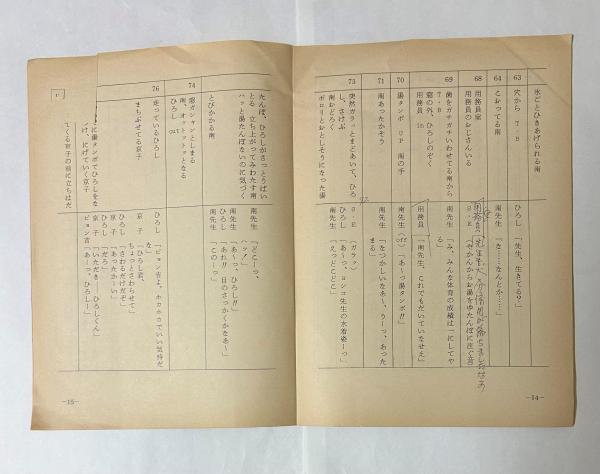 氷ごとひきあげられる南
63
穴から T・B
ひろし「先生、生きてる?」
64
こおってる南
南先生「な……なんとか…」
68
用務員室
用務員のおじさんいる
用務員
先生も大
SE(やかんからお湯をゆたんぽに注ぐ音)
69
歯をガチガチいわせてる南から
T・B
窓の外、ひろしのぞく
用務員 in
南先生「み、みんな体育の成績は一にしてやる」
用務員「南先生、これでもだいていなせえ」
70
湯タンポ UP 南の手
南先生(off)「あ〜っ湯タンポ!!」
71
南あったかそう
南先生「なつかしいなあ〜、うーっ、あったまる」
73
突然ガラッとまどあいて、ひろし、さけぶ
南おどろく
ポロリとおとしそうになった湯
SE(ガラッ)
ひろし「あーっ、ヨシコ先生の水着姿ーっ」
南先生「えっどこどこ」
—14—
たんぽ、ひろしがさっとうばいとる 立ち上がってみわたす南
ハッと湯たんぽないのに気づく
南先生「どこーっ、
ハッ!」
とびかかる南
南先生「あ〜っ、ひろし!!」
ひろし「あれ!! 目のさっかくかなあ〜」
南先生「このーっ」
74
窓ガシャンとしまる
南、オットットッとなる
ひろし out
76
走っているひろし
まちぶせてる京子
ひろし「ピョン吉よ、ホカホカでいい気持だな」
京子「ひろし君、
ちょっとさわらせて」
ひろし「さわるだけだぞ」
京子「あったか〜い」
ひろし「だろ」
に湯タンポでひろしをな
げ、にげていく京子
京子「いただき ひろしくん」
ピョン吉「あーっ、ひろしー」
てくる京子の前に立ちはだ
—15—